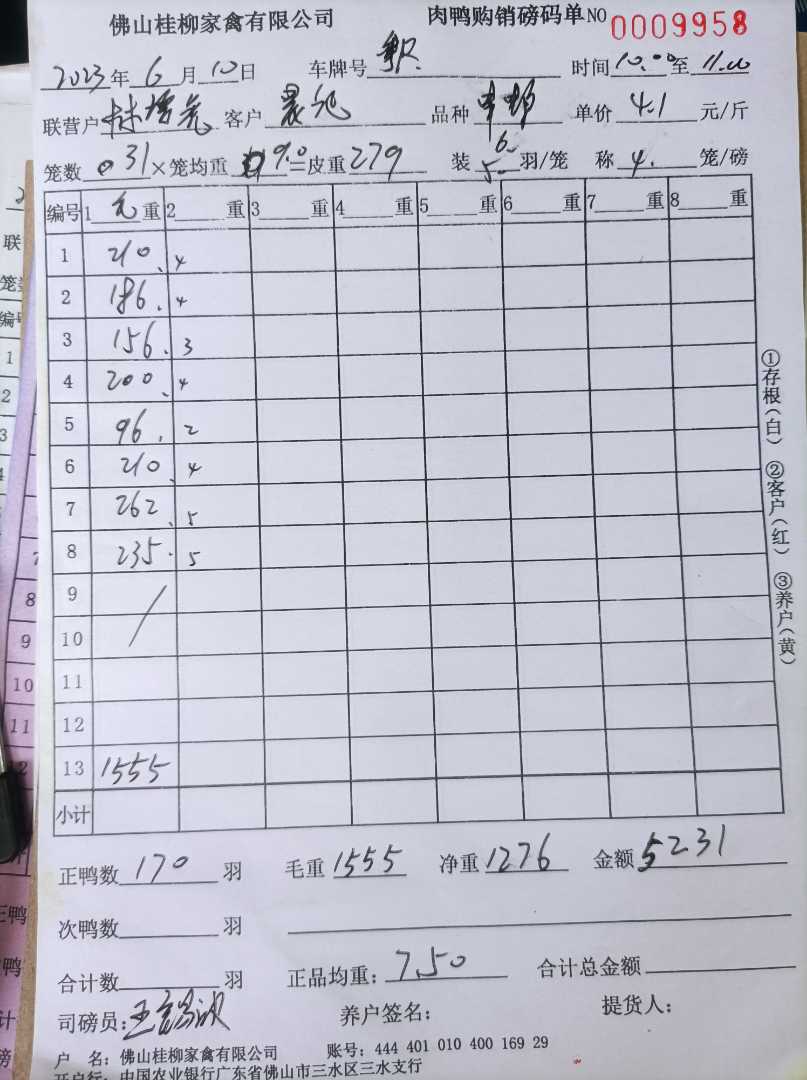 佛山桂柳家禽有限公司 肉鸭购销磅码单NO 0009958
2023年6月10日 车牌号 时间10.00至11.00
联营户 客户 品种 单价4.1元/斤
笼数31×笼均重9.0=皮重279 装6 5羽/笼 称4.笼/磅
编号 1毛重 2重 3重 4重 5重 6重 7重 8重
1 210. 4
2 186. 4
3 156. 3
4 200. 4
5 96. 2
6 210. 4
7 262. 5
8 235. 5
9
10
11
12
13 1555
小计
正鸭数170羽 毛重1555 净重1276 金额5231
次鸭数羽
合计数羽 正品均重:7.50 合计总金额
司磅员: 养户签名: 提货人:
户 名:佛山桂柳家禽有限公司 账号:444 401 010 400 169 29
开户行:中国农业银行广东省佛山市三水区三水支行
①存根(白) ②客户(红) ③养户(黄)